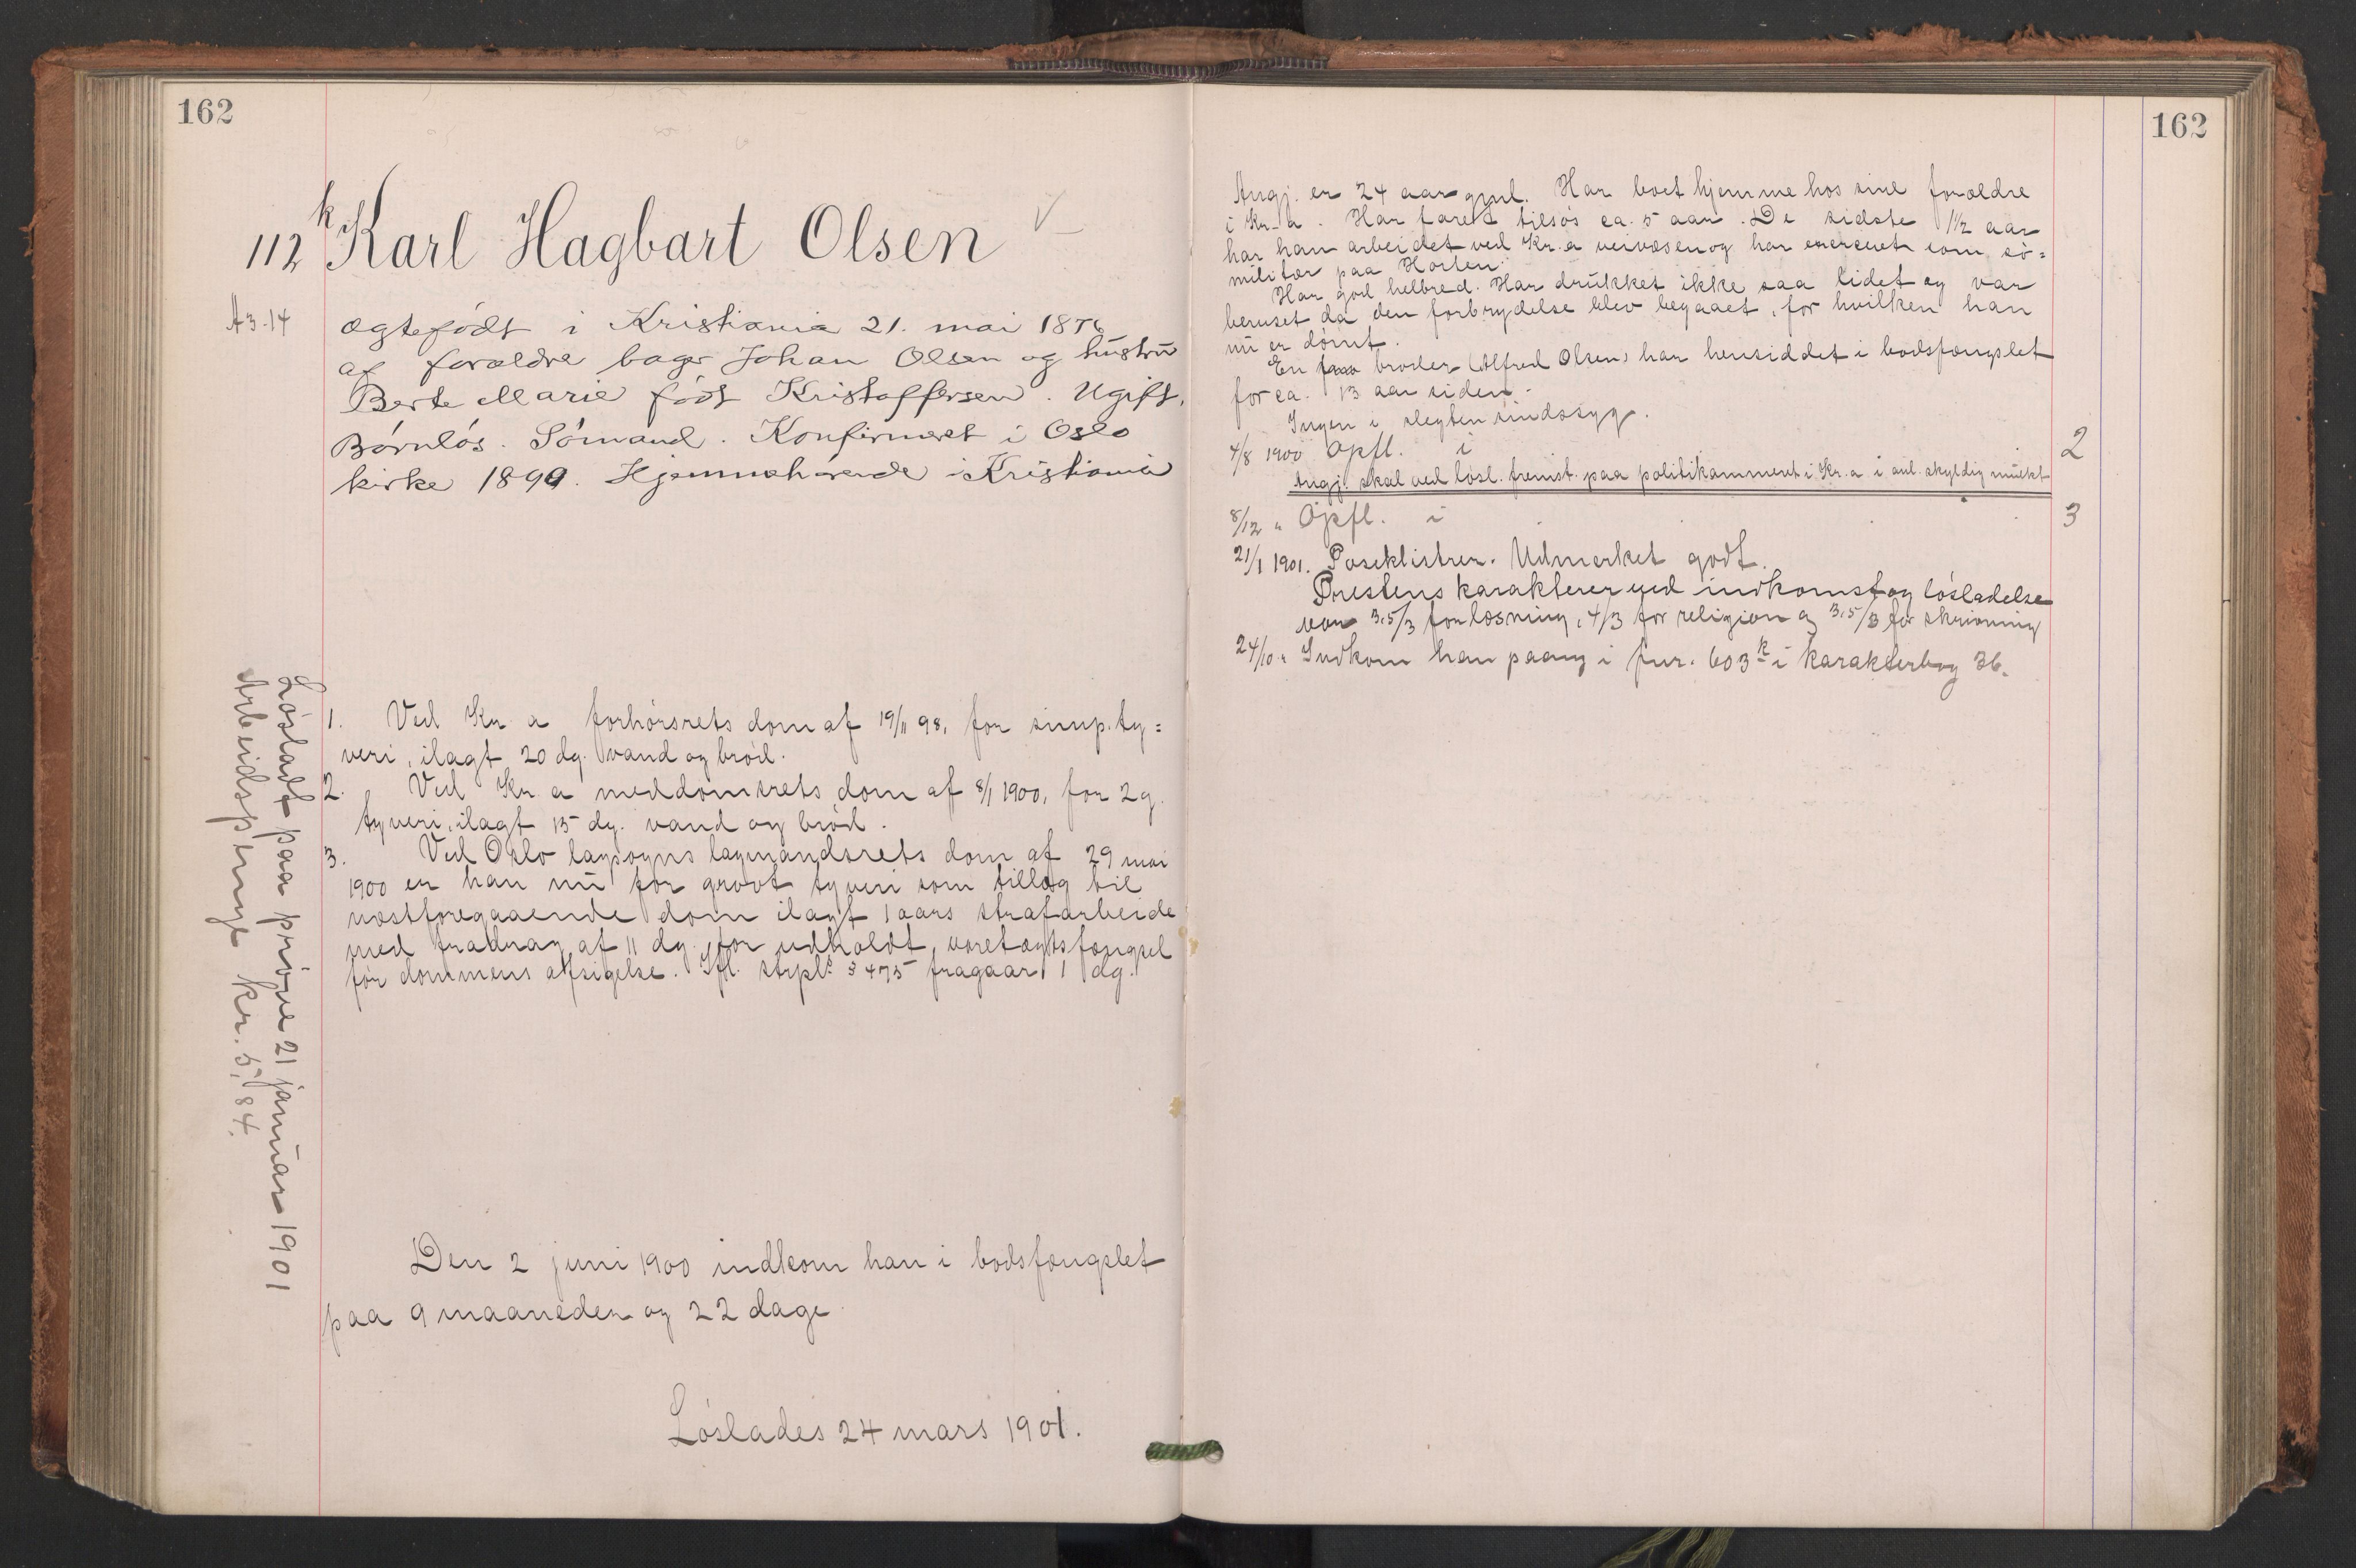 162
112 k Karl Hagbart Olsen
A3.14
ægtefødt i Kristiania 21. mai 1876
af forældre bager Johan Olsen og hustru
Berte Marie født Kristoffersen. Ugift.
Barnløs. Sømand. Konfirmeret i Oslo
kirke 1890. Hjemmehørende i Kristiania
1. Ved Kr.a forhørsrets dom af 19/11 98, for simp. ty=
veri, ilagt 20 dg. vand og brød.
2. Ved Kr.a meddomsrets dom af 8/1 1900, for 2 g.
tyveri, ilagt 15 dg. vand og brød.
3. Ved Oslo lagsogns lagmandsrets dom af 29 mai
1900 er han nu for grovt tyveri som tillæg til
næstforegaaende dom ilagt 1 aars strafarbeide
med fradrag af 11 dg. for udholdt varetægtsfængsel
før dommens afsigelse. Ifl. strpl. § 475 fragaar 1 dg.
Løsladt paa prøve 21 januar 1901
Arbeidspenge kr. 5,84.
Den 2 juni 1900 indkom han i bodsfængslet
paa 9 maaneder og 22 dage.
Løslades 24 mars 1901.
162
Angj. er 24 aar gml. Har boet hjemme hos sine forældre
i Kr.a. Har faret tilsøs ca. 5 aar. De sidste 1 1/2 aar
har han arbeidet ved Kr.a veivæsen og har exerceret som sø=
militær paa Horten.
Har god helbred. Har drukket ikke saa lidet og var
beruset da den forbrydelse blev begaaet, for hvilken han
nu er dømt.
En broder (Alfred Olsen) har hensiddet i bodsfængslet
for ca. 13 aar siden.
Ingen i slegten sindssyg.
4/8 1900 Opfl. i 2
Angj. skal ved løsl. fremst. paa politikammeret i Kr.a i anl. skyldig mulkt
8/12 " Opfl. i 3
21/1 1901. Poseklistrer. Udmerket godt.
Prestens karakterer ved indkomst og løsladelse
var 3,5/3 for læsning, 4/3 for religion og 3,5/3 for skrivning
24/10 " Indkom han paany i fnr. 603 k i karakterbog 36.